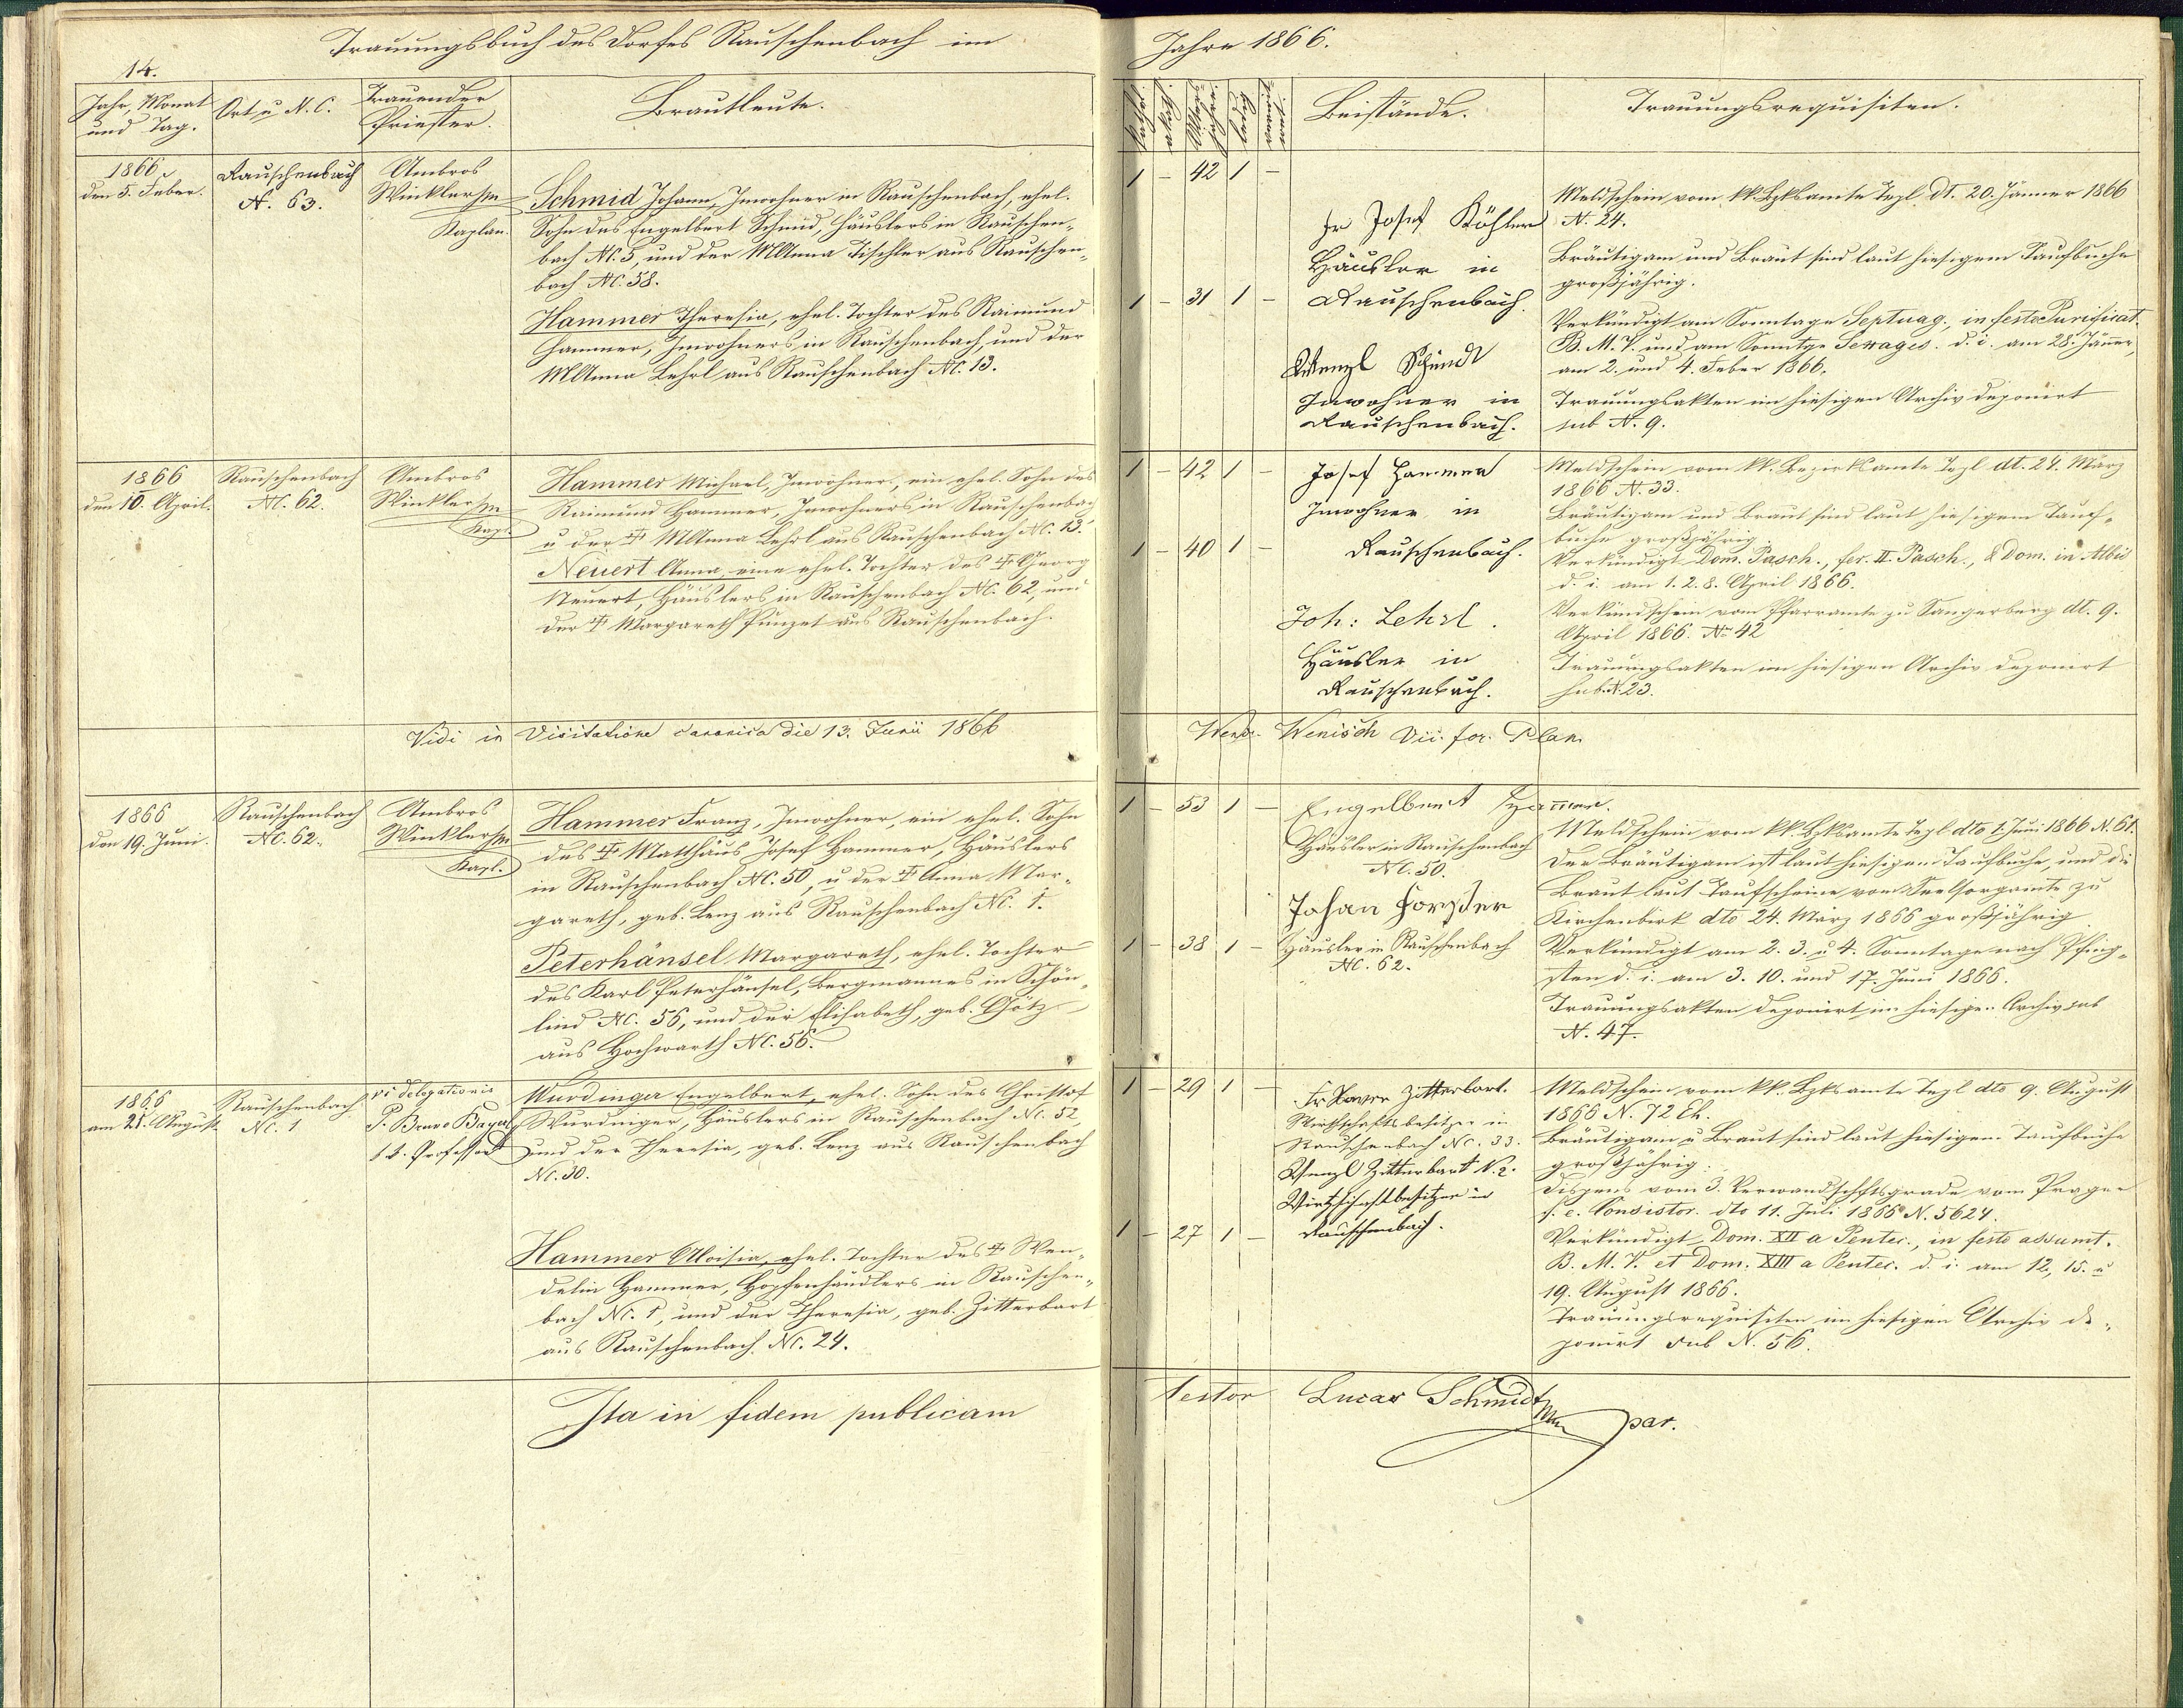 Trauungsbuch des Dorfes Rauschenbach im
Jahre 1866.
14.
Jahr, Monat
und Tag.
Ort u N. C.
Trauender
Priester.
Brautleute.
Beistände.
Trauungsrequisiten.
1866
den 5. Feber.
Rauschenbach
N. 63.
Ambros
Winkler
Kaplan.
Schmid Johann, Inwohner in Rauschenbach, ehel.
Sohn des Engelbert Schmid, Häuslers in Rauschen-
bach NC. 5, und der MAnna Tischler aus Rauschen-
bach NC. 58.
Hammer Theresia, ehel. Tochter des Raimund
Hammer, Inwohners in Rauschenbach und der
MAnna Lehrl aus Rauschenbach NC. 13.
1 - 42 1 -
1 - 31 1 -
Fr Josef Köhler
Häusler in
Rauschenbach.
Wenzl Schmidt
Inwohner in
Rauschenbach.
Meldschein vom kk. Bzksamte Tepl dt. 20. Jänner 1866
N. 24.
Bräutigam und Braut sind laut hiesigem Taufbuche
großjährig.
Verkündigt am Sonntage Septuag., in festo Purificat.
B. M. V. und am Sonntge Sexages. d. i. am 28. Jäner,
am 2. und 4. Feber 1866.
Trauungsakten im hiesigen Archiv deponirt
sub N. 9.
1866
den 10. April.
Rauschenbach
NC. 62.
Ambros
Winkler
Kapl.
Hammer Michael, Inwohner, ein ehel. Sohn des
Raimund Hammer, Inwohners in Rauschenbach
u der ‡ MAnna Lehrl aus Rauschenbach NC. 13.
Neuert Anna, eine ehel. Tochter des ‡ Georg
Neuert, Häuslers in Rauschenbach NC. 62, und
der ‡ Margareth Punzet aus Rauschenbach.
1 - 42 1 -
1 - 40 1 -
Josef Hammer
Inwohner in
Rauschenbach.
Joh: Lehrl.
Häusler in
Rauschenbach.
Meldschein vom kk. Bezirksamte Tepl dt. 24. März
1866 N. 33.
Bräutigam und Braut sind laut hiesigem Tauf-
buche großjährig.
Verkündigt Dom. Pasch., fer. II. Pasch., & Dom. in Albis
d. i. am 1. 2. 8. April 1866.
Verkündschein vom Pfarramte zu Sangerberg dt. 9.
April 1866. No 42
Trauungsakten im hiesigen Archiv deponirt
sub N. 23.
Vidi in Visitatione canonica die 13. Junii 1866
Wenisch Vic. for. Plan.
1866
den 19. Juni.
Rauschenbach
NC. 62.
Ambros
Winkler
Kapl.
Hammer Franz, Inwohner, ein ehel. Sohn
des ‡ Matthäus Josef Hammer, Häuslers
in Rauschenbach NC. 50, u der ‡ Anna Mar-
gareth, geb. Lenz aus Rauschenbach NC. 1.
Peterhänsel Margareth, ehel. Tochter
des Karl Peterhänsel, Bergmannes in Schön-
lind NC. 56, und der Elisabeth, geb. Götz
aus Hochwarth NC. 56.
1 - 53 1 -
1 - 38 1 -
Engelbert Hammer.
Häusler in Rauschenbach
NC. 50.
Johan Forster
Häusler in Rauschenbach
NC. 62.
Meldschein vom kk. Bzksamte Tepl dto 1. Juni 1866 N. 61.
Der Bräutigam ist laut hiesigem Taufbuche, und die
Braut laut Taufscheine vom Seelsorgamte zu
Kirchenbirk dto 24. März 1866 großjährig
Verkündigt am 2. 3. u 4. Sonntage nach Pfing-
sten d. i. am 3. 10. und 17. Juni 1866.
Trauungsakten deponirt im hiesigen Archiv sub
N. 47.
1866
am 21. August
Rauschenbach
NC. 1
vi delegationis
P. Bruno Bayerl
k. k. Professor
Wurdinger Engelbert, ehel. Sohn des Christof
Wurdinger, Häuslers in Rauschenbach NC. 52,
und der Theresia, geb. Lenz aus Rauschenbach
NC. 30.
Hammer Aloisia, ehel. Tochter des ‡ Wen-
delin Hammer, Hopfenhändlers in Rauschen-
bach NC. 1, und der Theresia, geb. Zitterbart
aus Rauschenbach NC. 24.
1 - 29 1 -
1 - 27 1 -
Fr Xaver Zitterbart.
Wirthschaftsbesitzer in
Rauschenbach NC. 33.
Wenzl Zitterbart N. 2.
Wirthschaftbesitzer in
Rauschenbach.
Meldschein vom kk. Bzksamte Tepl dto 9. August
1866 N. 72 Eh.
Bräutigam u Braut sind laut hiesigem Taufbuche
großjährig.
Dispens vom 3. Verwandschftsgrade vom Prager
f. e. Consistor. dto 11. Juli 1866 N. 5624.
Verkündigt Dom. XII a Pentec., in festo assumt.
B. M. V. et Dom. XIII a Pentec. d. i. am 12., 15. u
19. August 1866.
Trauungsrequisiten im hiesigen Archiv de-
ponirt sub N. 56.
Ita in fidem publicam
testor Lucas Schmidt
par.